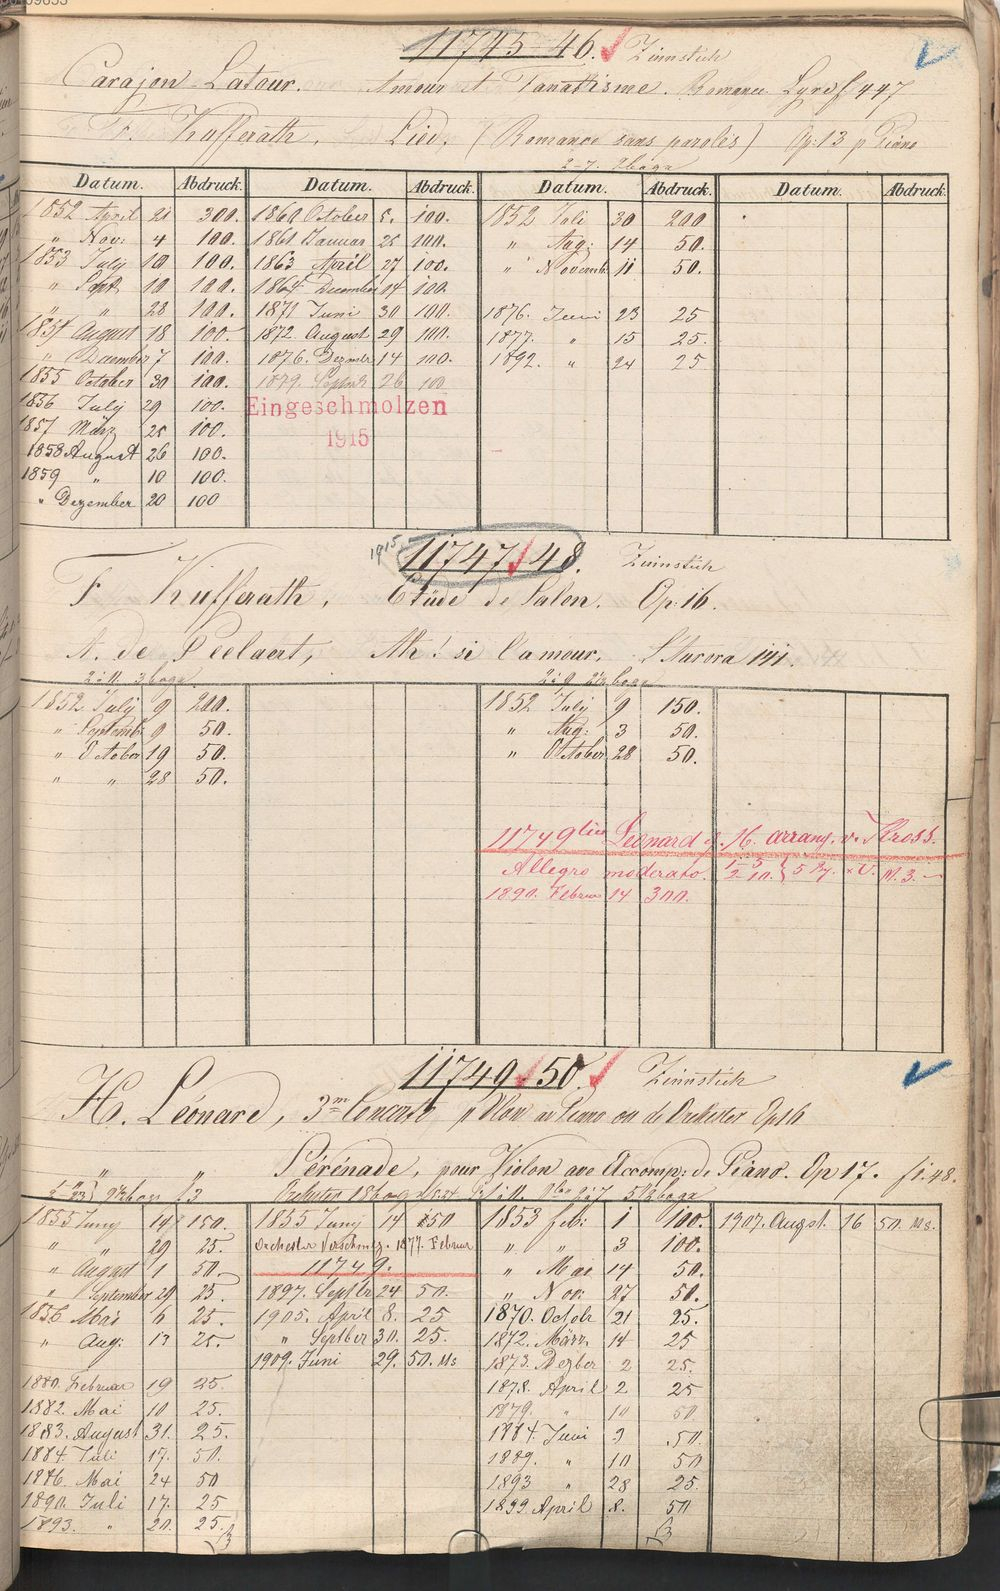 11745-46. Zinnstich
Carajon-Latour. Amour et Fanatisme. Romance Lyre f 447
F. Kufferath. Lied. (Romance sans paroles) Op: 13 p Piano
Datum. Abdruck. Datum. Abdruck. Datum. Abdruck. Datum. Abdruck.
1852 April 21 300. 1860 October 5. 100. 1852 Juli 30 200
" Nov: 4 100. 1861 Januar 25 100. " Aug: 14 50.
1853 July 10 100. 1863 April 27 100. " Novemb. 11 50.
" Spt. 10 100. 1864 December 14 100.
" " 28 100. 1871 Juni 30 100. 1876. Juni 23 25
1854 August 18 100. 1872. August 29 100. 1877. " 15 25.
" December 7 100. 1876. Dezmer 14 100. 1892. " 24 25
1855 October 30 100. 1879. Septbr 26 100
1856 July 29 100. Eingeschmolzen
1857 März 25 100. 1915
1858 August 26 100.
1859 " 10 100.
" Dezember 20 100
1915 11747-48. Zinnstich
F Kufferath, Etüde de Salon. Op: 16.
A. de Peelaert, Ah! si l'amour. L'Aurora 141.
1852 July 9 200. 1852 July 9 150.
" Septemb: 9 50. " Aug: 3 50.
" October 19 50. " October 28 50.
" " 28 50.
11749 bis Leonard op. 16. arrang. v. Kross.
Allegro moderato.
1890. Februar 14 300.
11749-50. Zinnstich
H. Léonard, 3me Concerto p Violon av Piano ou de Orchester Op 16
" " Sérénade, pour Violon ave Accomp: de Piano. Op 17. f 1.48.
1855 Juny 14 150. 1855 Juny 14 150 1853 feb: 1 100. 1907. Augst. 16 50. Ms.
" " 29 25. Orchester Verschmolz. 1877. Februar " " 3 100.
" August 1 50. 11749. " Mai 14 50.
" September 29 25. 1897. Septbr 24 50. " Nov: 27 50.
1856 Mai 6 25. 1905. April 8. 25 1870. Octobr 21 25.
" Aug: 13 25. " Septber 30. 25. 1872. März 14 25
1909. Juni 29. 50. Ms 1873. Dezber 2 25.
1880. Februar 19 25. 1878. April 2 25
1882. Mai 10 25. 1879. " 10 50
1883. August 31. 25. 1884. Juni 9 50.
1884. Juli 17. 50. 1889. " 10 50
1886. Mai 24 50 1893 " 28 25.
1890. Juli 17. 25 1899. April 8. 50
1893. " 20. 25.